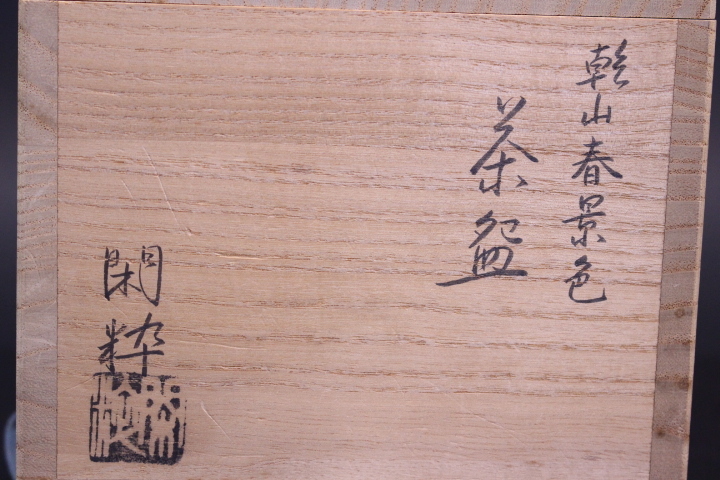 乾山春景色
茶盌
閑粋